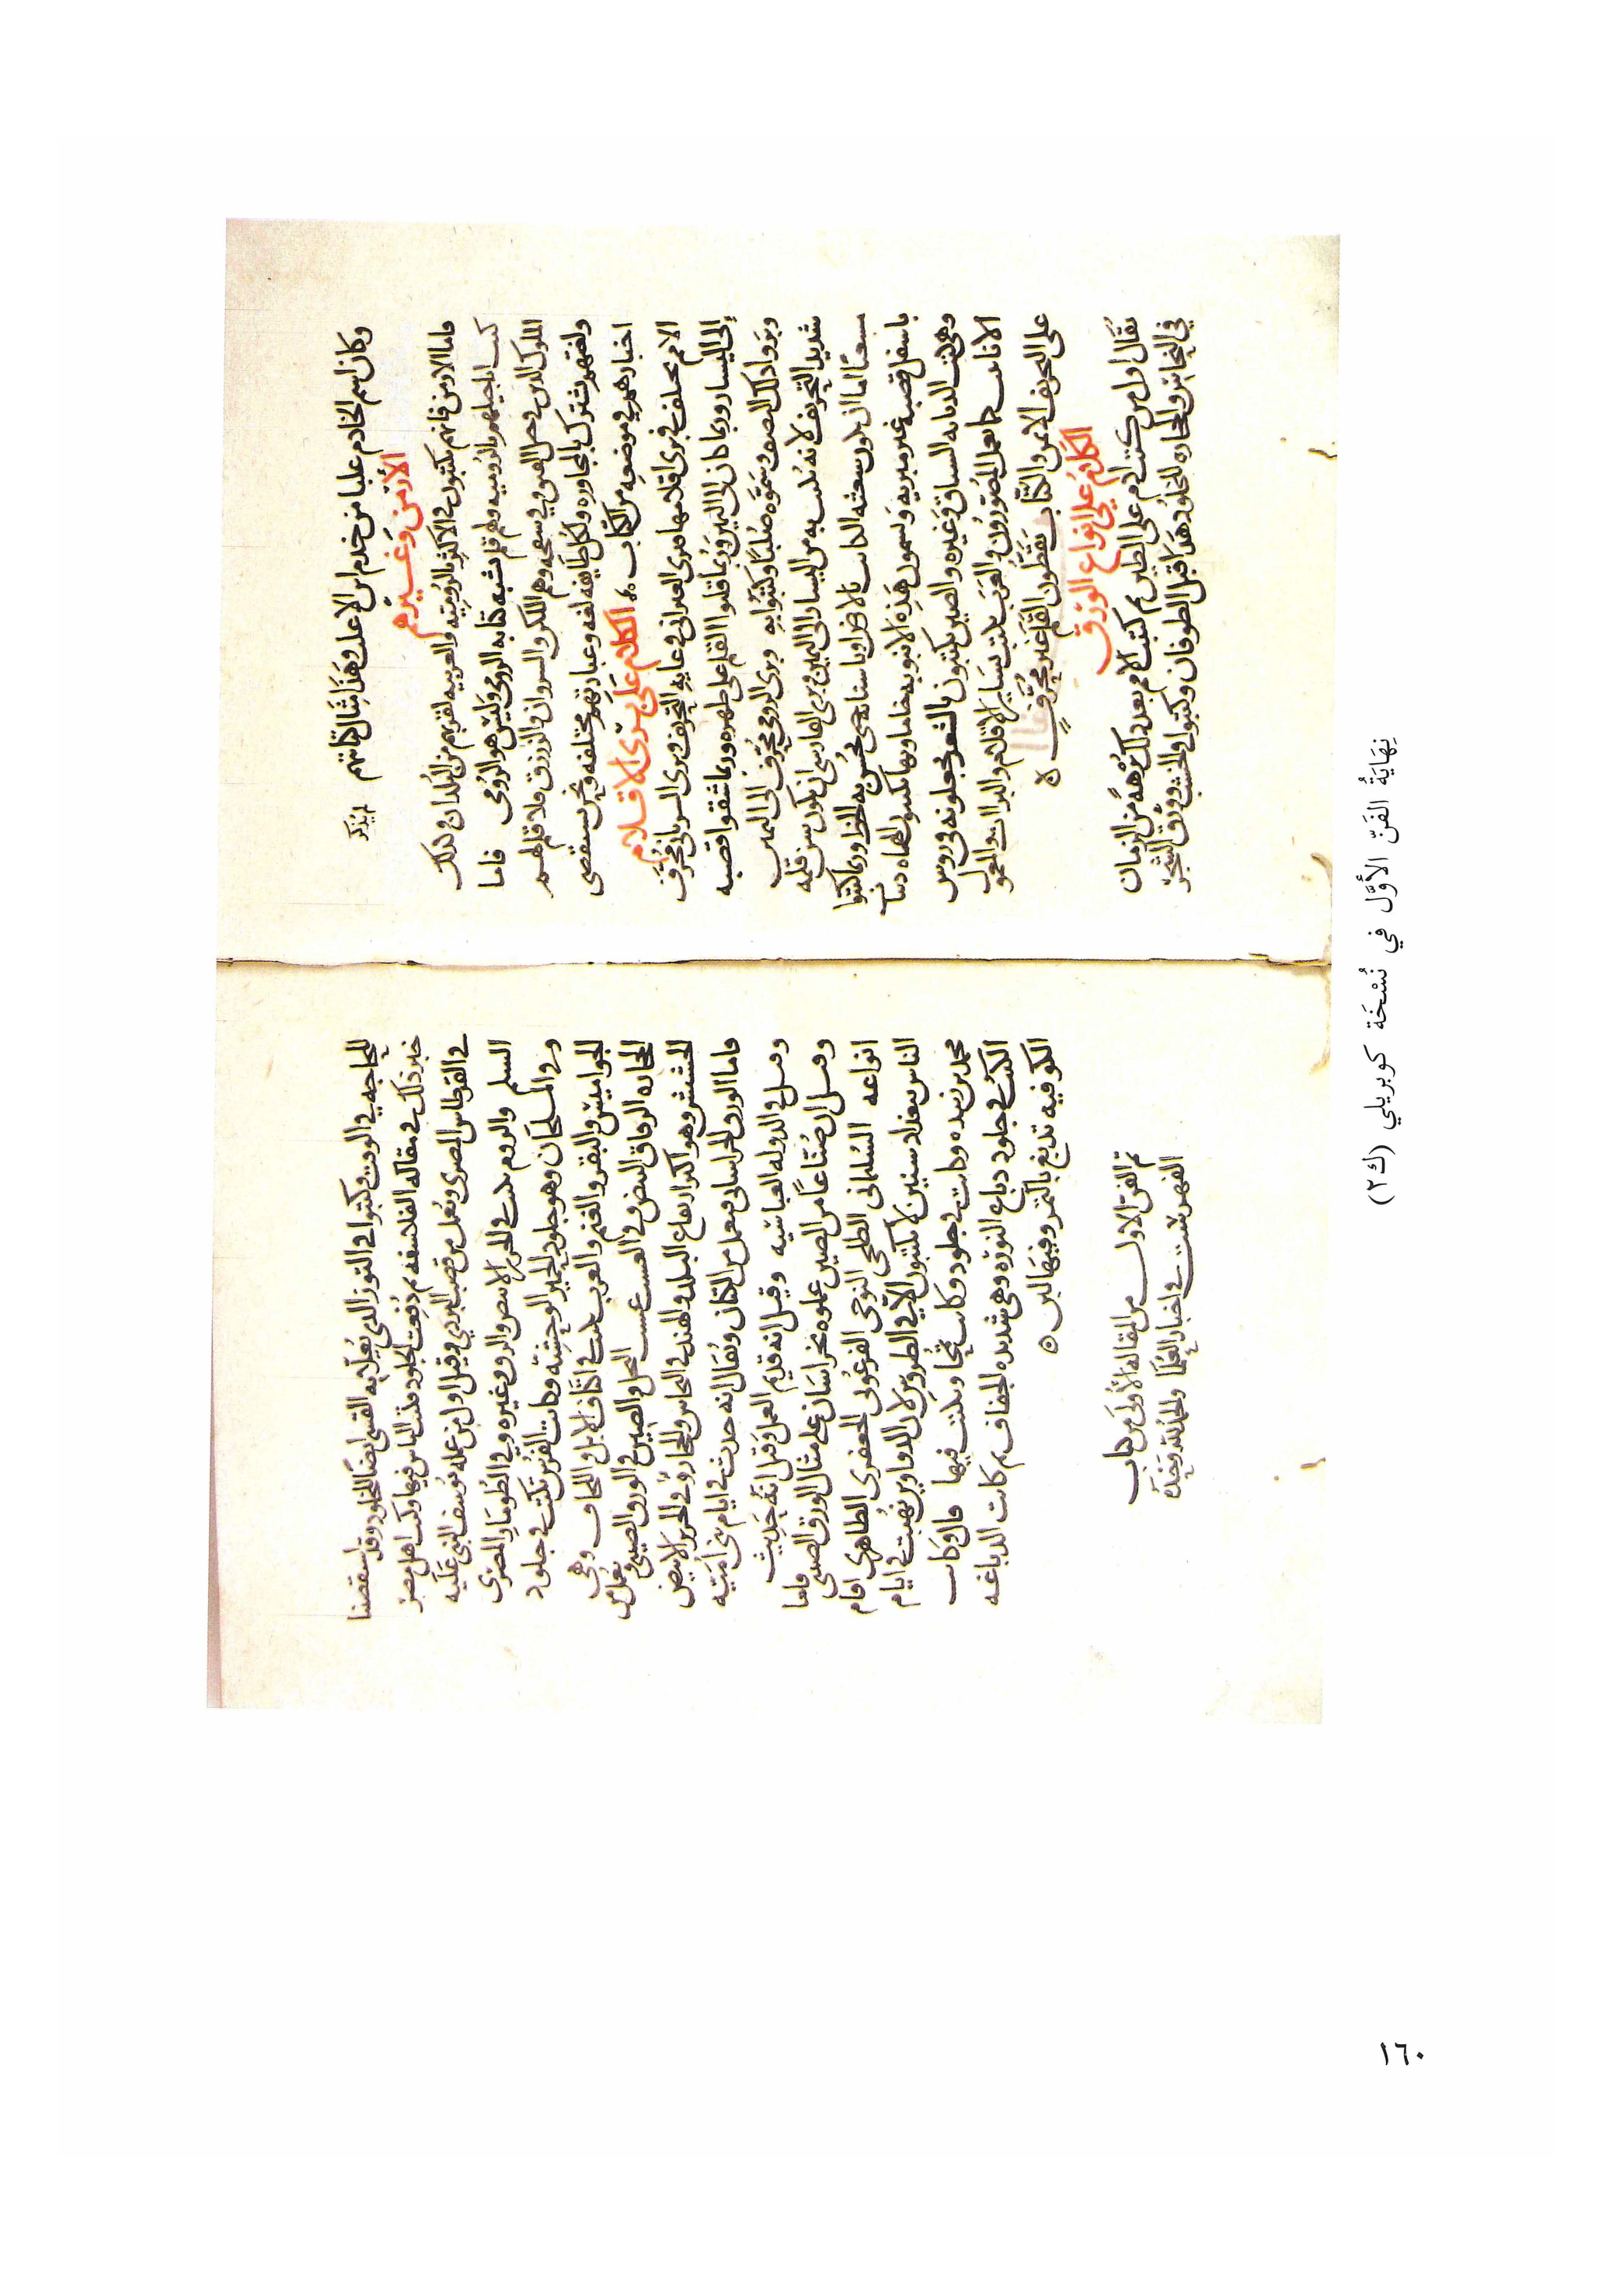 وكان اسم الخادم عليا من خدم ابن الاعلم وهذا مثال كتابتهم لم يذكر
الأرمن وغيرهم
فاما الارمن فانهم يكتبون في الاكثر بالروميه والعربيه لقربهم من البلدان وكذلك
كتب انجيلهم بالروميه ولهم قلم يشبه كتابه الرومي وليس هو الرومي فاما
الملوك الذين في جبل القبق وفي سفحه وهم اللكز والسروان والزرزق فلا قلم لهم
ولغتهم تشترك بالمجاوره ولكل طايفه لغه وعبارتهم مختلفه ونحن نستقصي
اخبارهم في موضعه من الكتاب الكلام على برى الاقلام
الامم تختلف في برى اقلامها فبرى العبراني في غايه التحريف وبرى السرياني محرف
إلى اليسار وربما كان الى اليمين وربما قلبوا القلم على ظهره وربما شقوا قصبه
وبروا ذلك النصف وسموه صلبا وكتبوا به وبرى الرومي محرف الى اليمين
شديد التحريف لانه يكتب به من اليسار الى اليمين وبرى الفارسي ان يكون سن قلمه
مشعثا اما ان يكون شعثه الكاتب بالارض او باسنانه حتى يحسن به الخط وربما كتبوا
باسفل قصبه غير مبريه ويسمون هذه الانبوبه خاما وبها يكتبون
وهي كتب الديانه السياق وغيره والصين يكتبون بالشعر يجعلونه في رؤوس
الانابيب كما يعمل المصورون والعرب تكتب بساير الاقلام والبرايات والمعول
على التحريف الايمن والكتاب يقطون القلم غير محرف ه
الكلام على انواع الورق
يقال اول من كتب ادم على الطين ثم كتبت الامم بعد ذلك برهة من الزمان
في النحاس والحجاره للخلود هذا قبل الطوفان وكتبوا في الخشب وورق الشجر
للحاجه في الوقت وكتبوا في التوز الذي يعلا به القسي ايضا للخلود وقد استقصينا
خبر ذلك في مقاله الفلاسفه ثم دبغت الجلود فكتب الناس فيها وكتب اهل مصر
في القرطاس المصري ويعمل من قصب البردي وقيل اول من عمله يوسف النبي عليه
السلم والروم تكتب في الحرير الابيض والرق وغيره وفي الطومار المصري
وفي الفلجان وهو جلود الحمير الوحشية وكانت الفرس تكتب في جلود
الجواميس والبقر والغنم والعرب تكتب في اكتاف الابل واللخاف وهي
الحجاره الرقاق البيض وفي العسب عسب النخل والصين في الورق الصيني ويعمل من
الحشيش وهو اكثر ارتفاع البلد والهند في النحاس والحجارة وفي الحرير الابيض
فاما الورق الخراساني فيعمل من الكتان ويقال انه حدث في ايام بني امية
وقيل في الدوله العباسيه وقيل انه قديم العمل وقيل انه حديث
وقيل ان صناعا من الصين عملوه بخراسان على مثال الورق الصيني فاما
انواعه السليماني الطلحي النوحي الفرعوني الجعفري الطاهري اقام
الناس ببغداد سنين لا يكتبون الا في الطروس لان الدواوين نهبت في ايام
محمد بن زبيده وكانت في جلود وكانت تمحا ويكتب فيها قال وكانت
الكتب في جلود دباغ النوره وهي شديده الجفاف ثم كانت الدباغه
الكوفيه تدبغ بالتمر وفيها لين ه
تم الفن الاول من المقالة الأولى من كتاب
الفهرست في اخبار العلما والحمد لله وحده
نِهَايَةُ الفَنّ الأوَّل في نُسْخَة كوبريلي (ك٢)
١٦٠